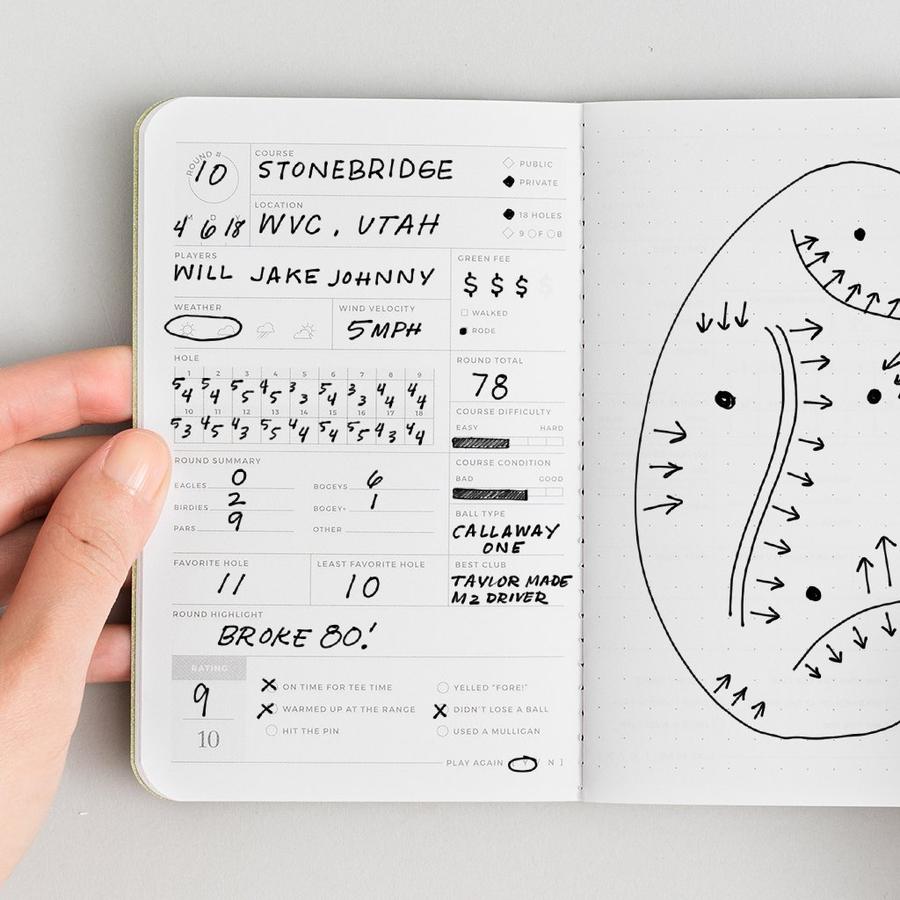 ROUND #
10
COURSE
STONEBRIDGE
PUBLIC
PRIVATE
M D Y
4 6 18
LOCATION
WVC, UTAH
18 HOLES
9 F B
PLAYERS
WILL JAKE JOHNNY
GREEN FEE
$ $ $ $
WEATHER
WIND VELOCITY
5 MPH
WALKED
RODE
HOLE
1 2 3 4 5 6 7 8 9
5 4 5 4 3 5 4 5 3 3 5 4 3 3 4 4 4 4
10 11 12 13 14 15 16 17 18
5 3 4 5 4 3 5 5 4 4 5 4 5 5 4 3 4 4
ROUND TOTAL
78
COURSE DIFFICULTY
EASY HARD
ROUND SUMMARY
EAGLES 0
BIRDIES 2
PARS 9
BOGEYS 6
BOGEY+ 1
OTHER
COURSE CONDITION
BAD GOOD
BALL TYPE
CALLAWAY
ONE
FAVORITE HOLE
11
LEAST FAVORITE HOLE
10
BEST CLUB
TAYLOR MADE
M2 DRIVER
ROUND HIGHLIGHT
BROKE 80!
RATING
9
10
X ON TIME FOR TEE TIME
YELLED "FORE!"
X WARMED UP AT THE RANGE
X DIDN'T LOSE A BALL
HIT THE PIN
USED A MULLIGAN
PLAY AGAIN [ Y / N ]